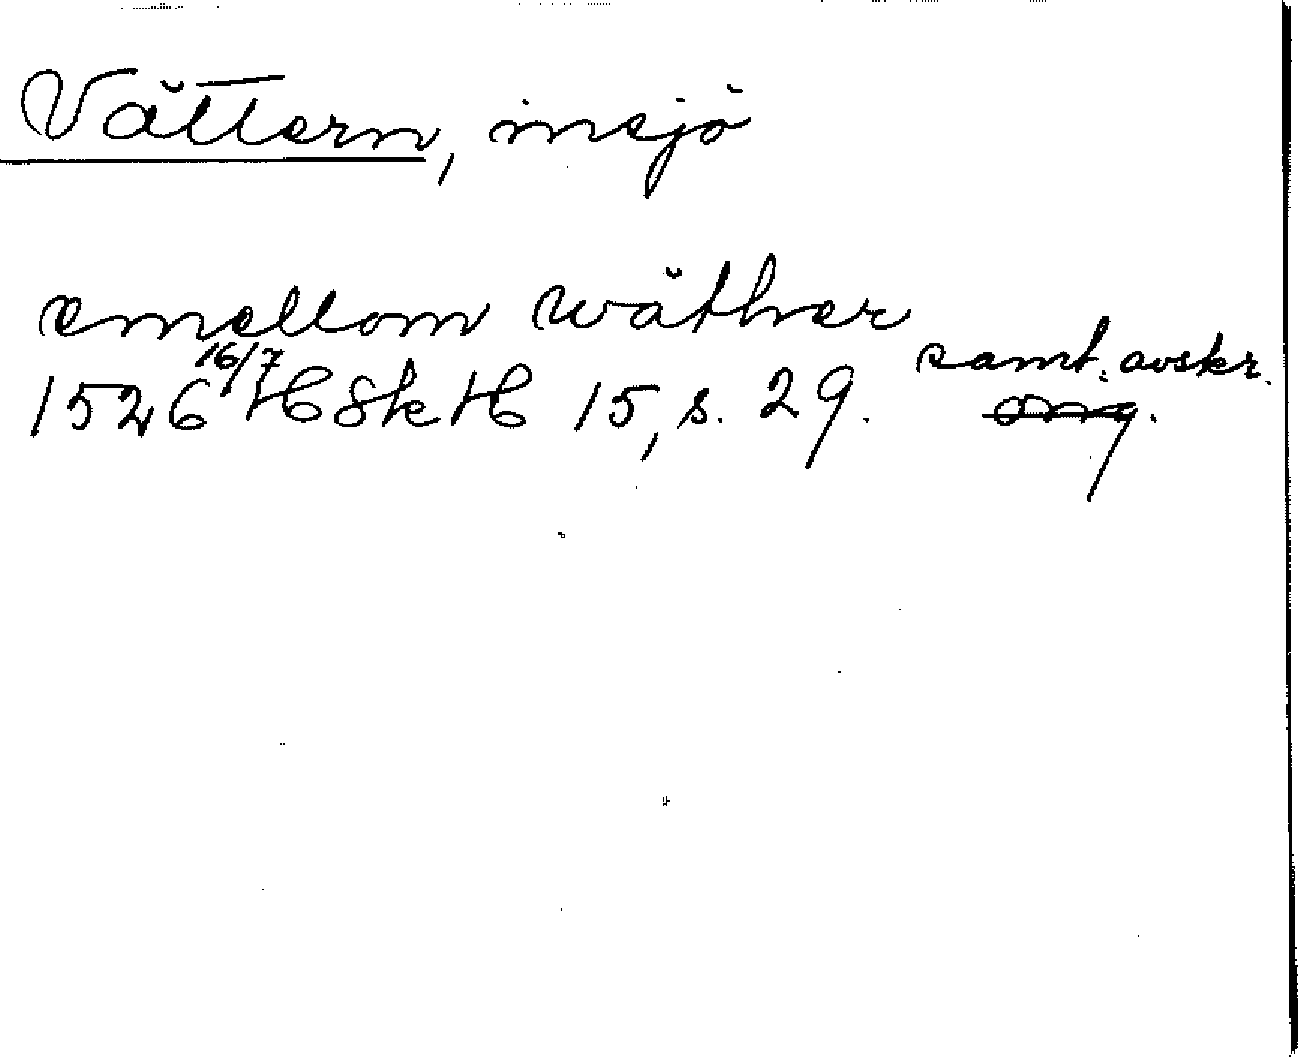 Vättern, insjö
emellom wäther
1526 16/7 HSkH 15, s. 29. samt. avskr.